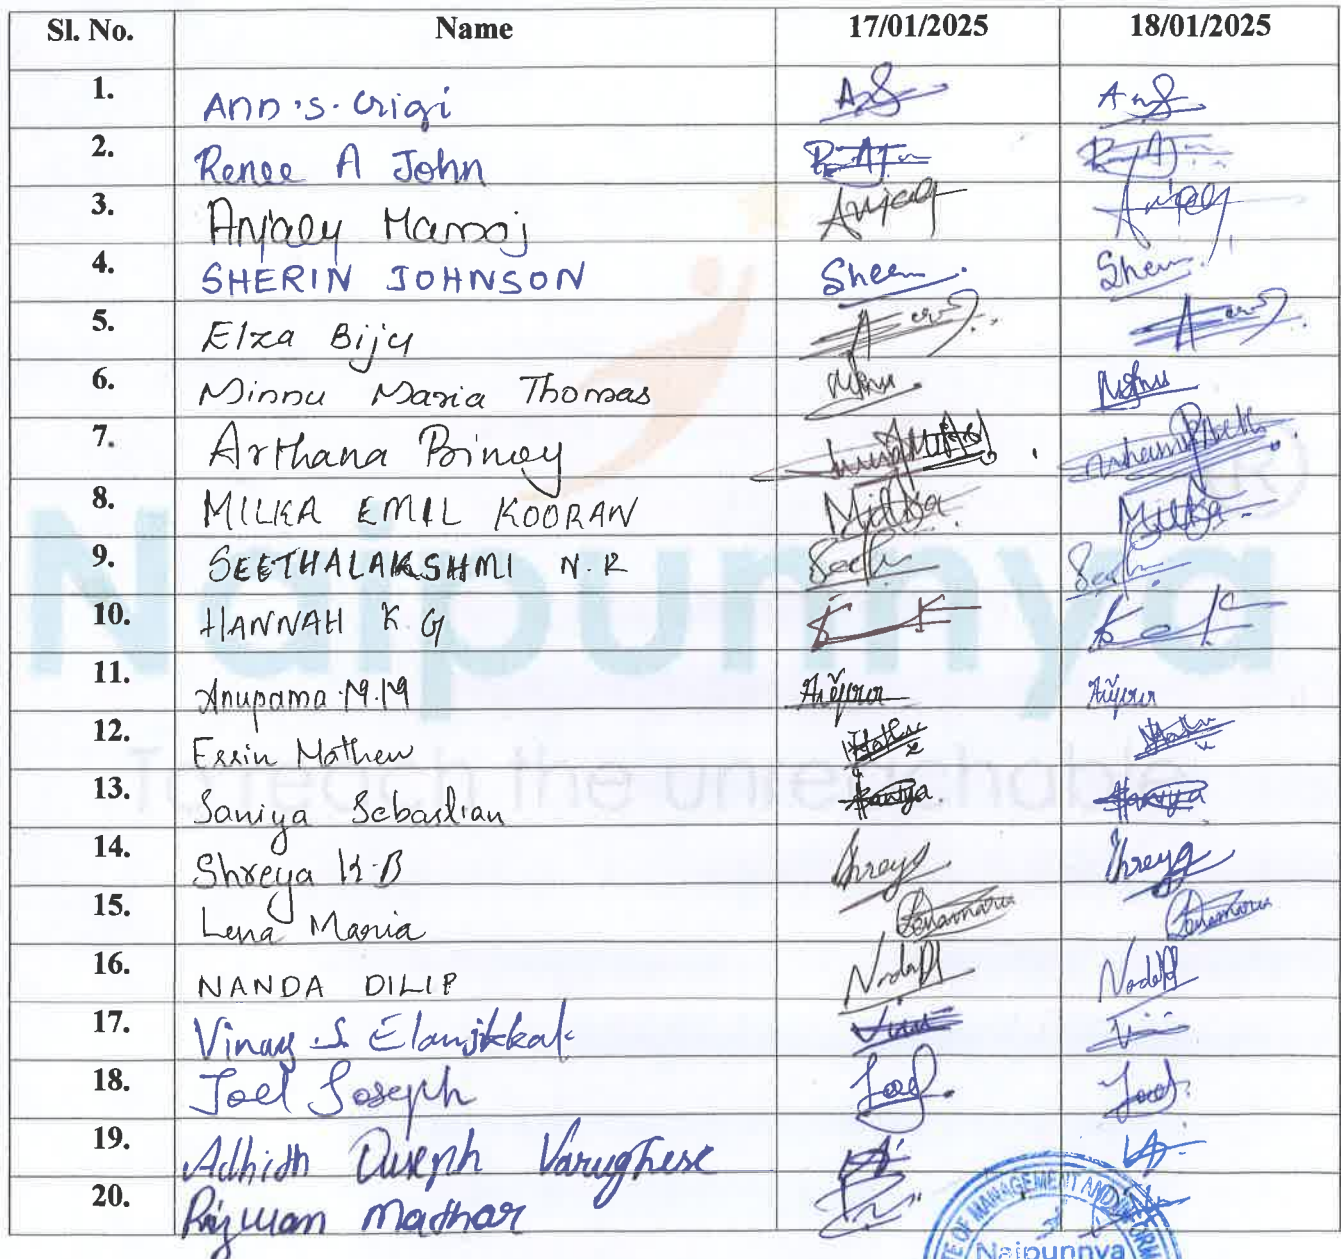 Sl. No. Name 17/01/2025 18/01/2025
1. Ann.S.Crigi
2. Renee A John
3. Anjaly Manoj Anjaly Anjaly
4. SHERIN JOHNSON
5. Elza Biju
6. Minnu Maria Thomas
7. Arthana Binoy
8. MILKA EMIL KOORAN Milka Milka
9. SEETHALAKSHMI N.R
10. HANNAH K.G
11. Anupama M.M
12. Essin Mathew
13. Saniya Sebastian Saniya Saniya
14. Shreya K.B Shreya Shreya
15. Lena Maria Lenamaria Lenamaria
16. NANDA DILIP
17. Vinay S Elanjikkal
18. Joel Joseph Joel Joel
19. Adhith Ouseph Varughese
20. Rizwan Madhar
Naipunnya
To reach the unreachable
OF MANAGEMENT AND
Naipunnya